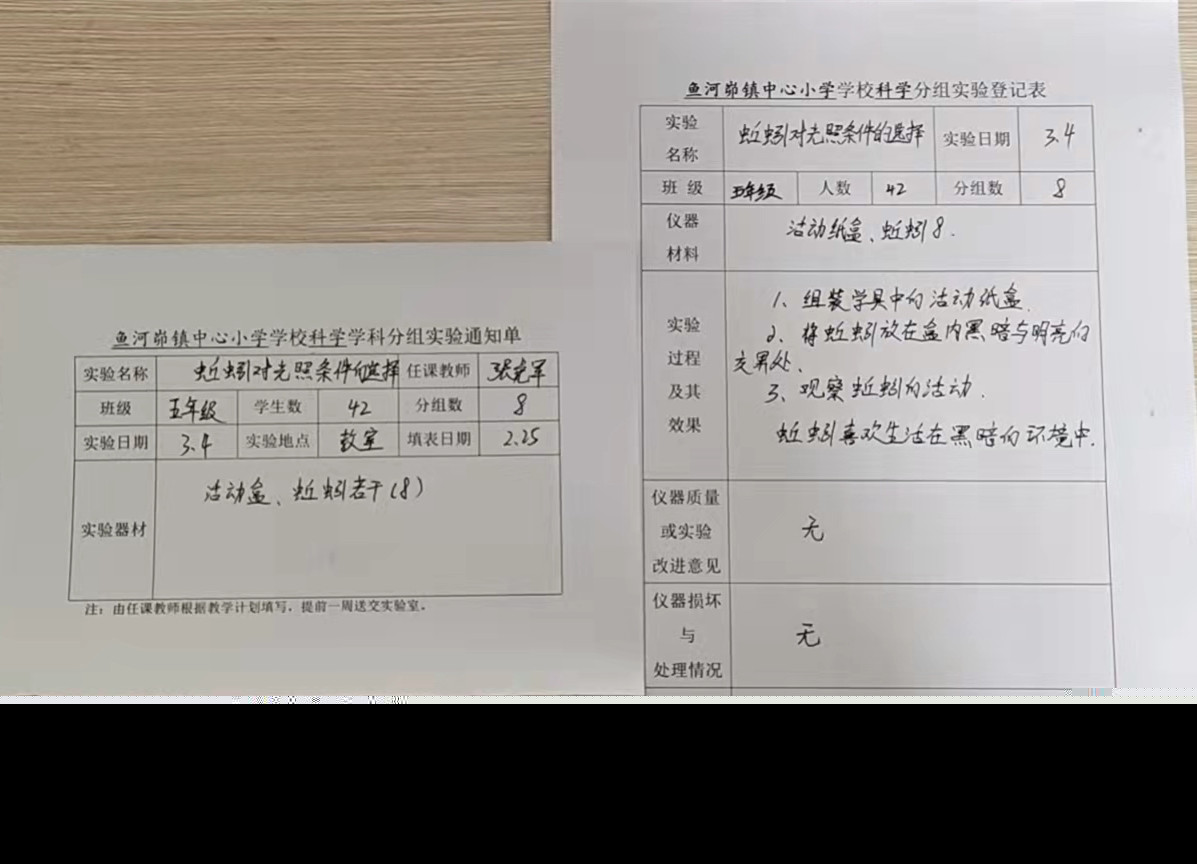 鱼河峁镇中心小学学校科学学科分组实验通知单
实验名称 蚯蚓对光照条件的选择 任课教师
班级 五年级 学生数 42 分组数 8
实验日期 3.4 实验地点 教室 填表日期 2.25
实验器材 活动盒、蚯蚓若干(8)
注：由任课教师根据教学计划填写，提前一周送交实验室。
鱼河峁镇中心小学学校科学分组实验登记表
实验名称 蚯蚓对光照条件的选择 实验日期 3.4
班 级 五年级 人数 42 分组数 8
仪器材料 活动纸盒、蚯蚓8.
实验过程及其效果
1、组装学具中的活动纸盒.
2、将蚯蚓放在盒内黑暗与明亮的
交界处、
3、观察蚯蚓的活动.
蚯蚓喜欢生活在黑暗的环境中.
仪器质量或实验改进意见 无
仪器损坏与处理情况 无